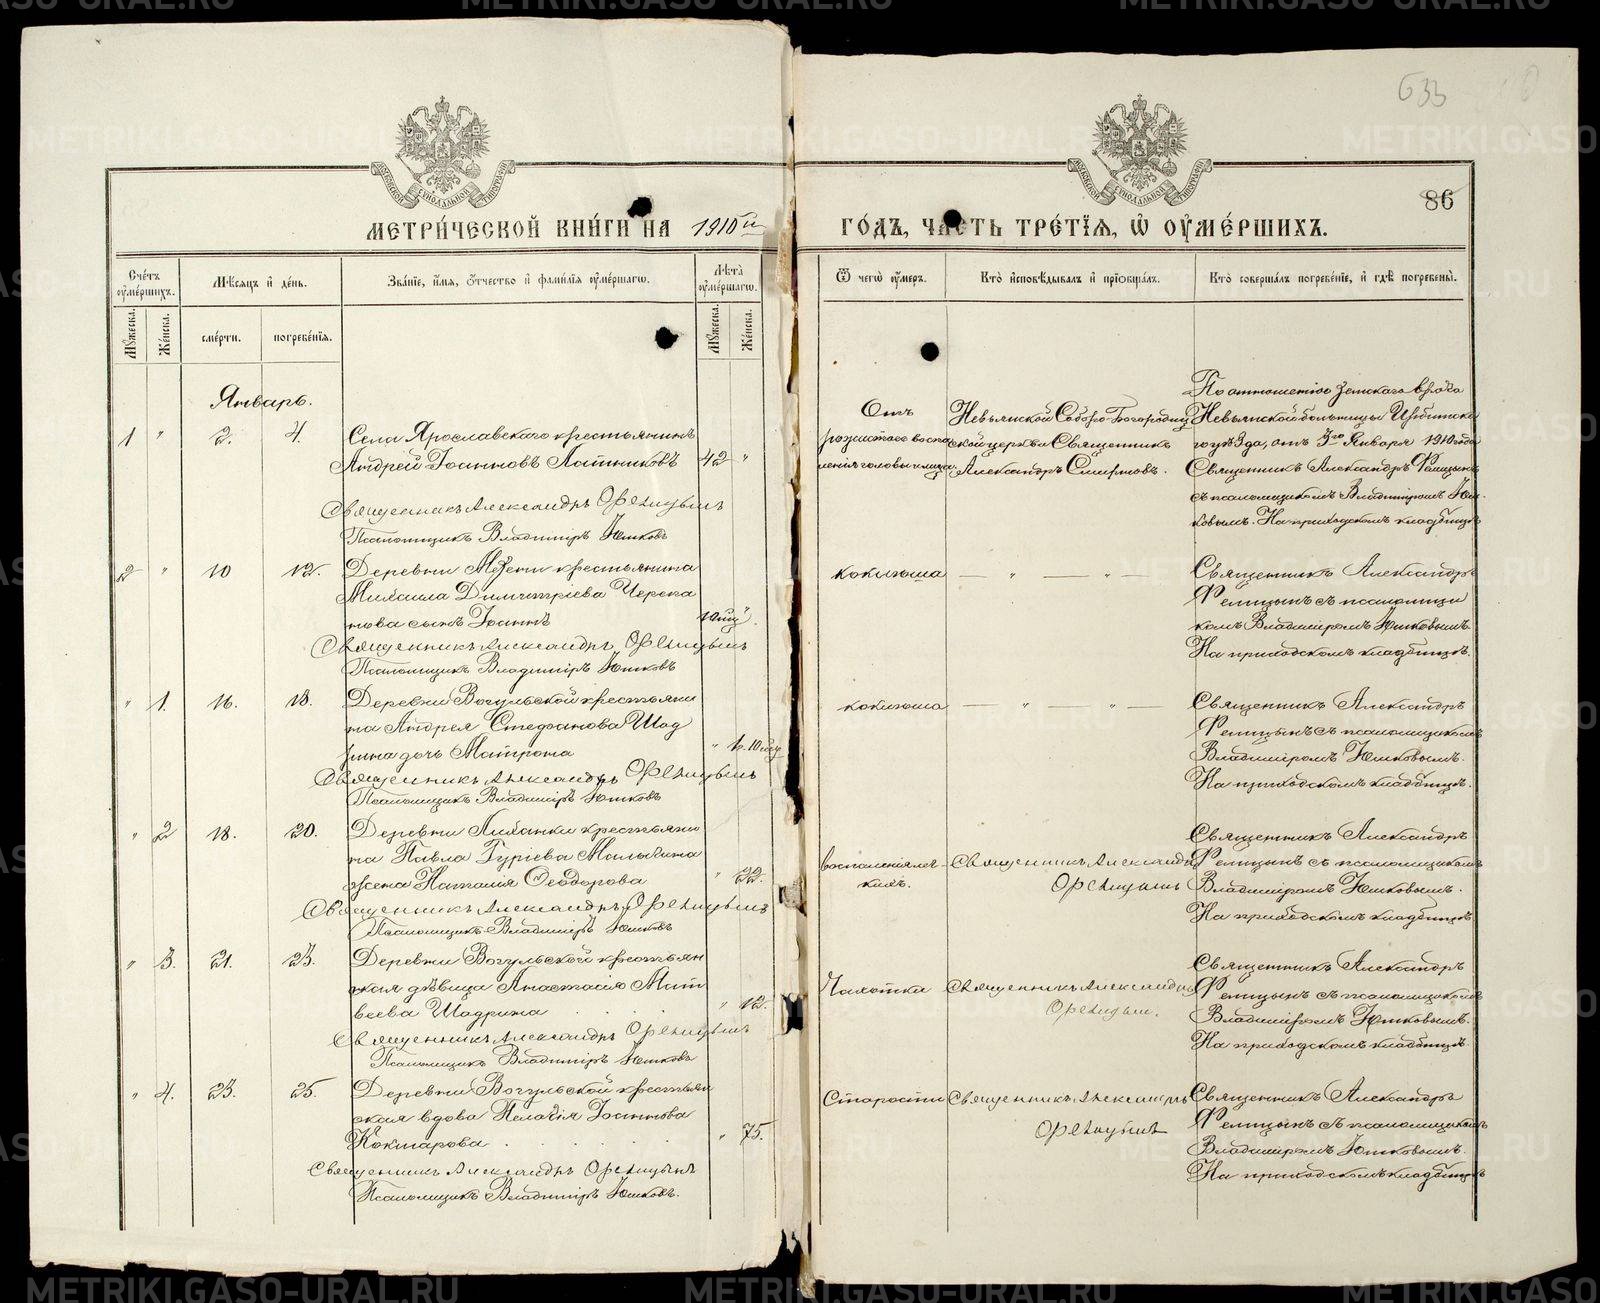 633
86
МЕТРИЧЕСКОЙ КНИГИ НА 1910й ГОДЪ, ЧАСТЬ ТРЕТІЯ, Ѿ ОУМЕРШИХЪ.
Счетъ оумершихъ.
Мѣсяцъ и день.
Званіе, имя, отчество и фамилія оумершагѡ.
Лѣта оумершагѡ.
Ѿ чегѡ оумеръ.
Кто исповѣдывалъ и пріобщалъ.
Кто совершалъ погребеніе, и гдѣ погребены.
Мужеска.
Женска.
смерти.
погребенія.
Мужеска.
Женска.
Январь.
1 " 2. 4.
Села Ярославскаго крестьянинъ
Андрей Іоанновъ Латниковъ 42 "
Священникъ Александръ Фелицынъ
Псаломщикъ Владиміръ Юшковъ
Отъ
рожистаго воспа
ленія головы и лица
Невьянской Соборо-Богородиц
кой церкви Священникъ
Александръ Смирновъ.
По отношенію Земскаго врача
Невьянской больницы Ирбитска
го уѣзда, отъ 3го Января 1910 года
Священникъ Александръ Фелицынъ
съ псаломщикомъ Владиміромъ Юш
ковымъ. На приходскомъ кладбищѣ
2 " 10 12.
Деревни крестьянина
Михаила Димитріева Черепа
нова сынъ Іоаннъ
Священникъ Александръ Фелицынъ
Псаломщикъ Владиміръ Юшковъ
коклюша — " — " —
Священникъ Александръ
Фелицынъ съ псаломщи
комъ Владиміромъ Юшковымъ.
На приходскомъ кладбищѣ.
" 1. 16. 18.
Деревни Вогульской крестьяни
на Андрея Стефанова Шад
рина дочь Матрона
Священникъ Александръ Фелицынъ
Псаломщикъ Владиміръ Юшковъ
коклюша — " — " —
Священникъ Александръ
Фелицынъ съ псаломщикомъ
Владиміромъ Юшковымъ.
На приходскомъ кладбищѣ.
" 2 18. 20.
Деревни крестьяни
на Павла Гуріева Малыгина
жена Наталія Ѳеодорова " 22.
Священникъ Александръ Фелицынъ
Псаломщикъ Владиміръ Юшковъ
воспаленія лег
кихъ.
Священникъ Александръ
Фелицынъ
Священникъ Александръ
Фелицынъ съ псаломщикомъ
Владиміромъ Юшковымъ.
На приходскомъ кладбищѣ
" 3. 21. 23.
Деревни Вогульской крестьян
ская дѣвица Анастасія Мат
веева Шадрина " 12.
Священникъ Александръ Фелицынъ
Псаломщикъ Владиміръ Юшковъ
Чахотка
Священникъ Александръ
Фелицынъ.
Священникъ Александръ
Фелицынъ съ псаломщикомъ
Владиміромъ Юшковымъ.
На приходскомъ кладбищѣ.
" 4. 23. 25.
Деревни Вогульской крестьян
ская вдова Пелагія Іоаннова
Кокшарова " 75.
Священникъ Александръ Фелицынъ
Псаломщикъ Владиміръ Юшковъ.
Старости
Священникъ Александръ
Фелицынъ
Священникъ Александръ
Фелицынъ съ псаломщикомъ
Владиміромъ Юшковымъ.
На приходскомъ кладбищѣ
METRIKI.GASO-URAL.RU